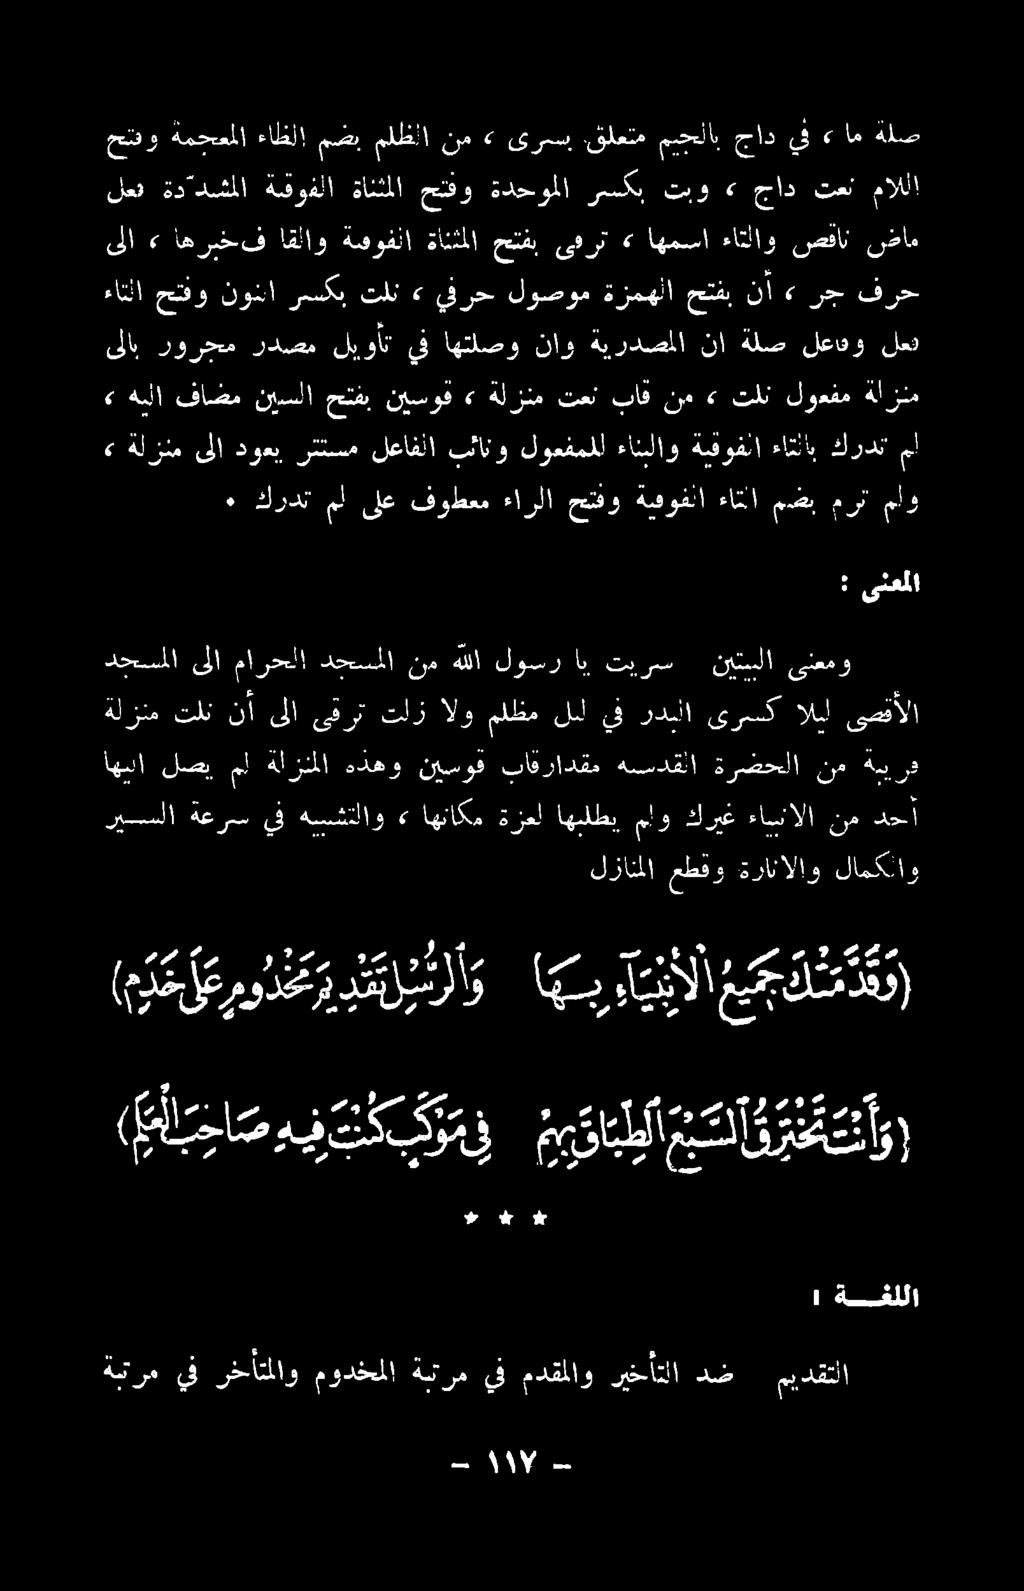 صلة ما ، في داج بالجيم متعلق بسرى ، من الظلم بضم الظاء المعجمة وفتح
اللام نعت داج ، وبت بكسر الموحدة وفتح المثناة الفوقية المشددة فعل
ماض ناقص والتاء اسمها ، ترقى بفتح المثناة الفوقية والقاف خبرها ، الى
حرف جر ، أن بفتح الهمزة موصول حرفي ، نلت بكسر النون وفتح التاء
فعل وفاعل صلة ان المصدرية وان وصلتها في تأويل مصدر مجرور بالى
منزلة مفعول نلت ، من قاب نعت منزلة ، قوسين بفتح السين مضاف اليه ،
لم تدرك بالتاء الفوقية والبناء للمفعول ونائب الفاعل مستتر يعود الى منزلة ،
ولم ترم بضم التاء الفوقية وفتح الراء معطوف على لم تدرك •
المعنى :
ومعنى البيتين سريت يا رسول الله من المسجد الحرام الى المسجد
الأقصى ليلا كسرى البدر في ليل مظلم ولا زلت ترقى الى أن نلت منزلة
قريبة من الحضرة القدسيه مقدارقاب قوسين وهذه المنزلة لم يصل اليها
أحد من الانبياء غيرك ولم يطلبها لعزة مكانها ، والتشبيه في سرعة السير
والكمال والانارة وقطع المنازل
(وَقَدَّمَتْكَ جَمِيعُ الْأَنْبِيَآءِ بِهَا وَالرُّسْلِ تَقْدِيمَ مَخْدُومٍ عَلَى خَدَمِ)
(وَأَنْتَ تَخْتَرِقُ السَّبْعَ الطِّبَاقَ بِهِمْ فِي مَوْكَبٍ كُنْتَ فِيهِ صَاحِبَ الْعَلَمِ)
* * *
اللغــة :
التقديم ضد التأخير والمقدم في مرتبة المخدوم والمتأخر في مرتبة
– ١١٧ –